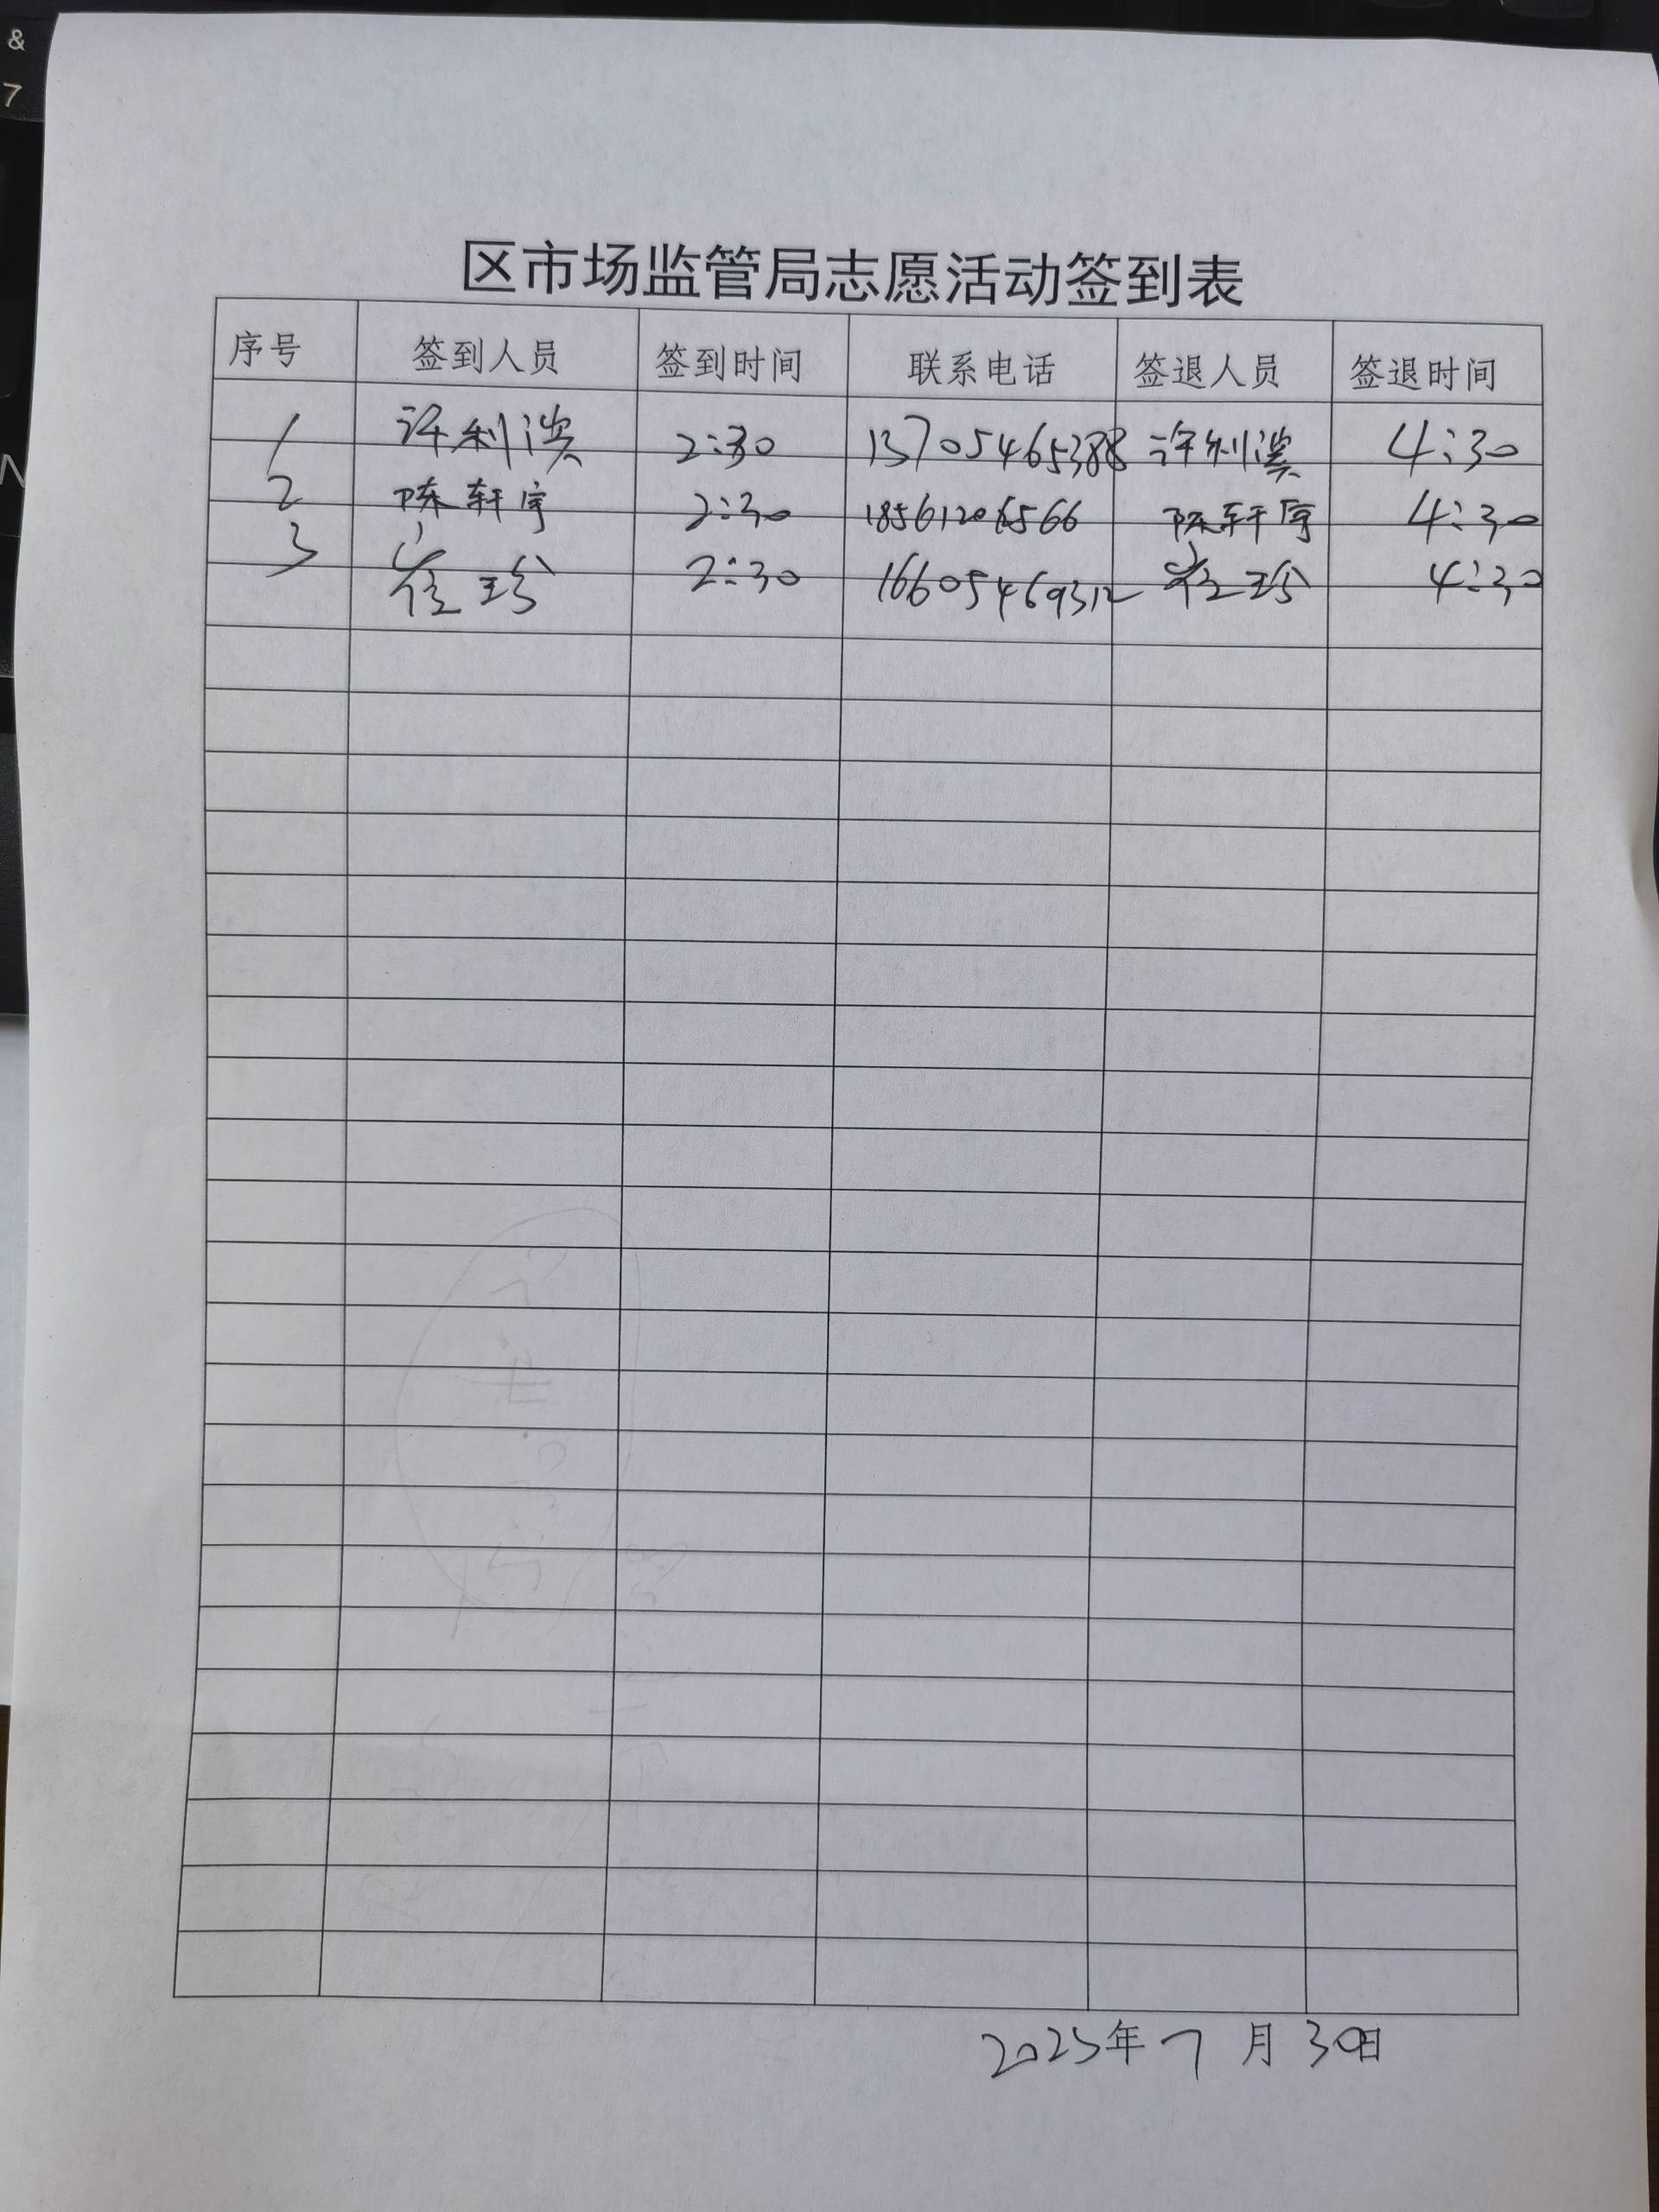 区市场监管局志愿活动签到表
序号 签到人员 签到时间 联系电话 签退人员 签退时间
1 许利滨 2:30 13705465388 许利滨 4:30
2 陈轩宇 2:30 18561206566 陈轩宇 4:30
3 崔珍 2:30 16605469312 崔珍 4:30
2025年7月30日
& 7
N